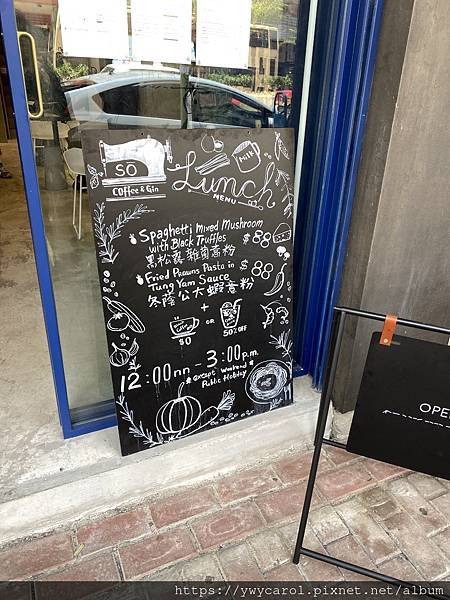 SO
COFFEE & Gin
Lunch
MENU
Milk
Spaghetti Mixed Mushroom
with Black Truffles $88
黑松露雜菌意粉
Fried Prawns Pasta in
Tung Yam Sauce $88
冬蔭公大蝦意粉
+
$0 OR 50% OFF
12:00nn - 3:00p.m.
except weekend &
Public Holiday
OPE
photo by https://ywycarol.pixnet.net/album